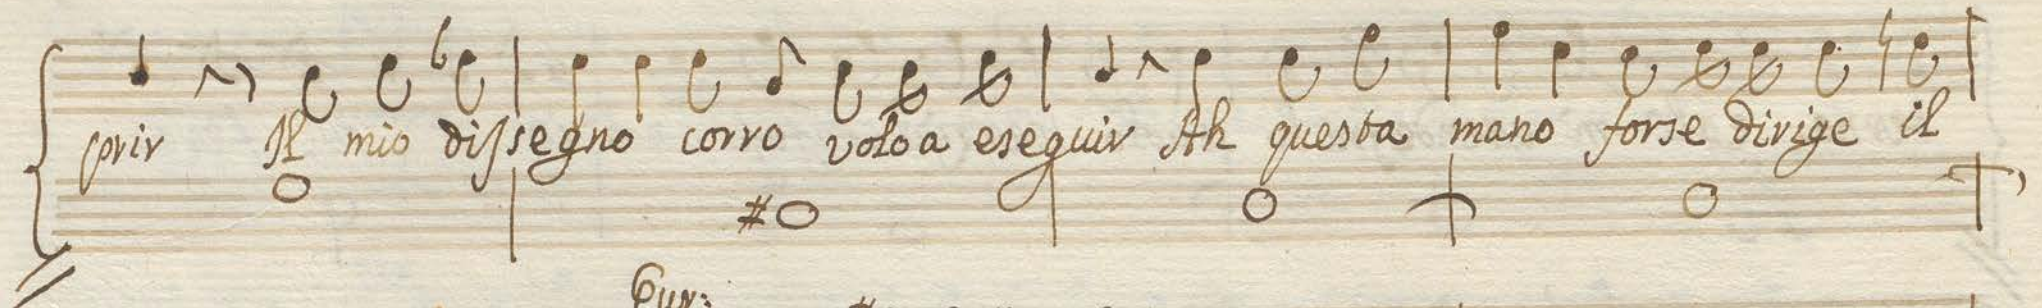 sprir Il mio disegno corro volo a eseguir Ah questa mano forse dirige il
Eur: